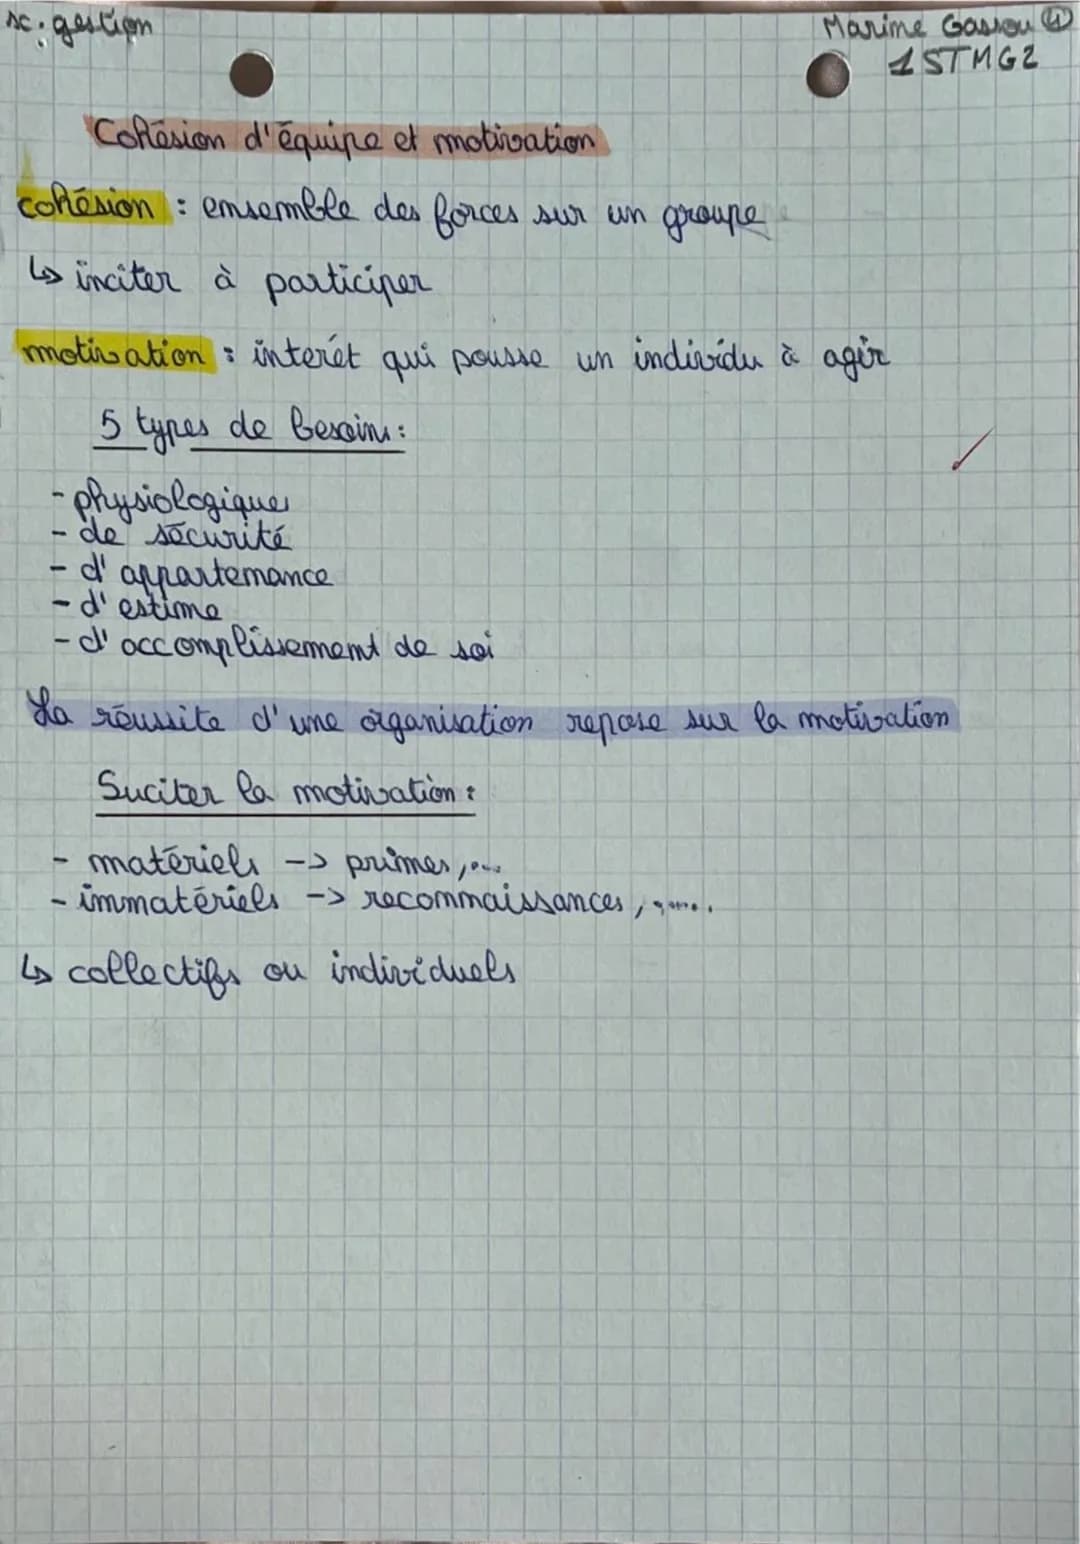 sc. gestion
Marine Gassou ④
1STMG2
Cohésion d'équipe et motivation
cohésion : ensemble des forces sur un groupe
↳ inciter à participer
motivation : interêt qui pousse un individu à agir
5 types de besoins :
- physiologiques
- de sécurité
- d'appartenance
- d'estime
- d'accomplissement de soi
La réussite d'une organisation repose sur la motivation
Suciter la motivation :
- matériels -> primes, ...
- immatériels -> reconnaissances, ....
↳ collectifs ou individuels